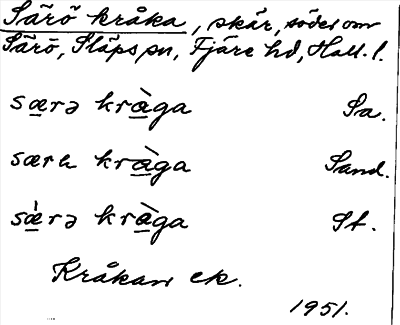 Särö kråka, skär, söder om
Särö, Släps sn, Fjäre hd, Hall. l.
særə kràga Sa.
særɩ kràga Sand.
sæ̀rə kràga St.
Kråkan ek.
1951.